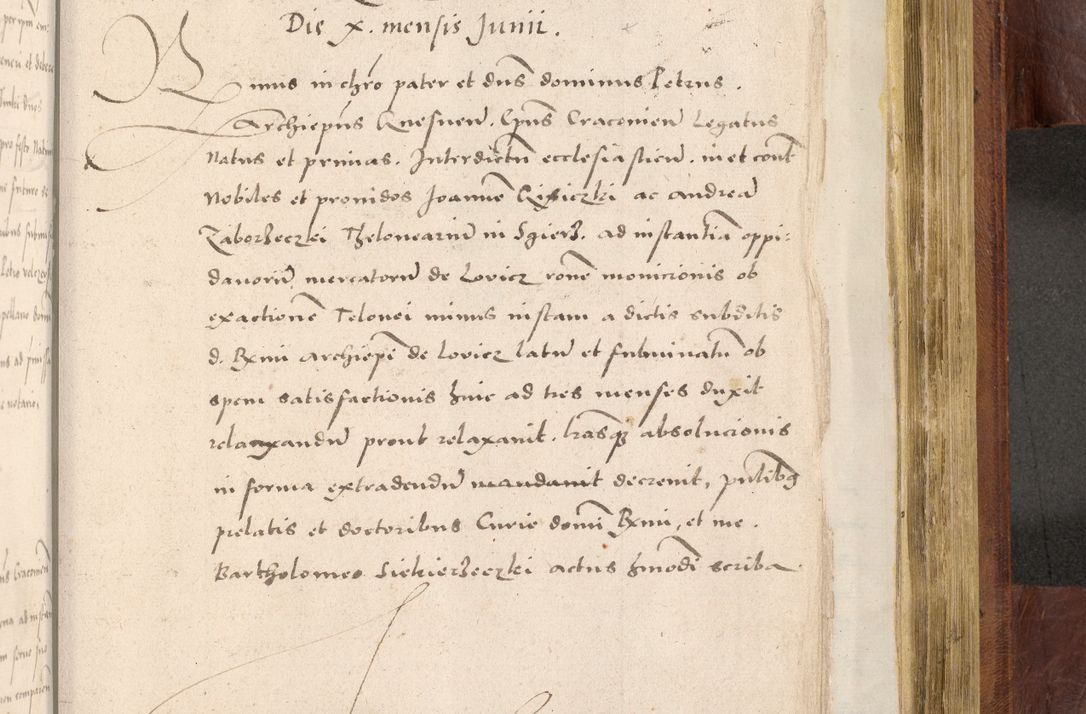 Die X. mensis Junii.
Rmus in chro pater et dns dominus Petrus.
Archiepus Gnesnen. Epus Cracovien Legatus
Natus et primas. Interdictu ecclesiasticu. in et cont
Nobiles et providos Joanne ac Andrea
Zaborzeczki Theloneariu in Sgierz. ad instantia oppi:
danoru mercatoru de Lovicz rone monicionis ob
exactione Telonei minus iustam a dictis subditis
d. Rxmi Archiepi de Lovicz latu et fulminatu ob
spem satisfactionis huic ad tres menses duxit
relaxandu prout relaxavit. lrasq absolucionis
in forma extradendu mandavit decrevit, pntibq
prelatis et doctoribus Curie domi Rxmi, et me.
Bartholomeo Siekierzeczki actus hmodi scriba